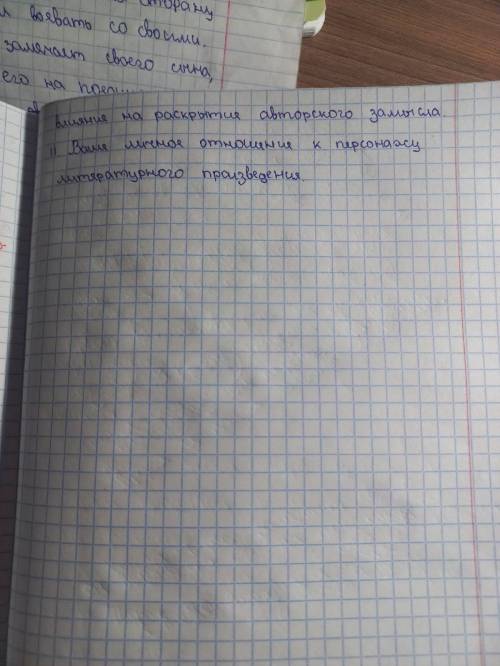 сторану
воевать со своими.
замечает своего сына,
его на
влияние на раскрытия авторского замысла.
11 Ваше личное отношение к персонажу
литературного произведения.